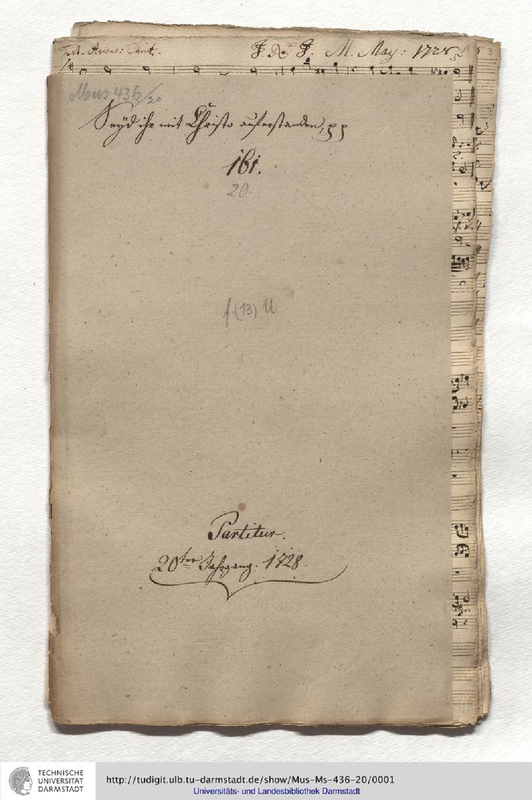 M. May: 1728
Mus 436/20
Seÿd ihr mit Christo auferstanden, pp
161.
20.
f. (13) U
Partitur.
20ter Jahrgang. 1728.
TECHNISCHE
UNIVERSITÄT
DARMSTADT
http://tudigit.ulb.tu-darmstadt.de/show/Mus-Ms-436-20/0001
Universitäts- und Landesbibliothek Darmstadt